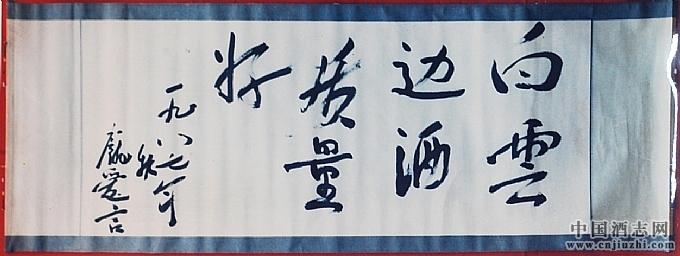 白雲
边酒
质量
好
一九八七年
秋
爱言
中国酒志网
www.cnjiuzhi.com